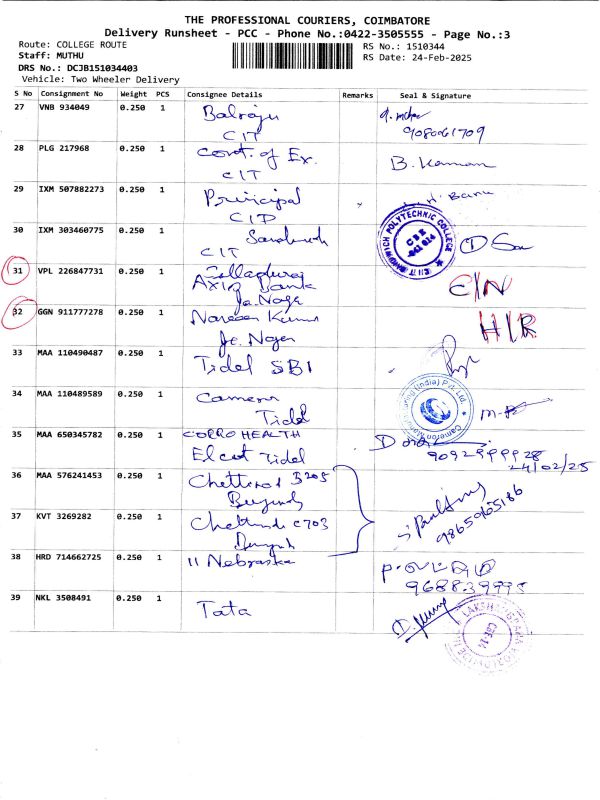 THE PROFESSIONAL COURIERS, COIMBATORE
Delivery Runsheet - PCC - Phone No.:0422-3505555 - Page No.:3
Route: COLLEGE ROUTE RS No.: 1510344
Staff: MUTHU RS Date: 24-Feb-2025
DRS No.: DCJB151034403
Vehicle: Two Wheeler Delivery
S No Consignment No Weight PCS Consignee Details Remarks Seal & Signature
27 VNB 934049 0.250 1 Balraju
CIT 9080061709
28 PLG 217968 0.250 1 Cont. of Ex. B. Kannan
CIT
29 IXM 507882273 0.250 1 Principal
CIT
30 IXM 303460775 0.250 1
CIT
31 VPL 226847731 0.250 1
Axis Bank C/N
Je. Nagar
32 GGN 911777278 0.250 1 Nareen Kumar H/R
Je. Nagar
33 MAA 110490487 0.250 1 Tidel SBI
34 MAA 110489589 0.250 1 Cameron
Tidel
35 MAA 650345782 0.250 1 CORRO HEALTH
Elcot Tidel
24/02/25
36 MAA 576241453 0.250 1 B205
37 KVT 3269282 0.250 1 C703
9865065186
38 HRD 714662725 0.250 1 11 Nebraska
39 NKL 3508491 0.250 1 Tata